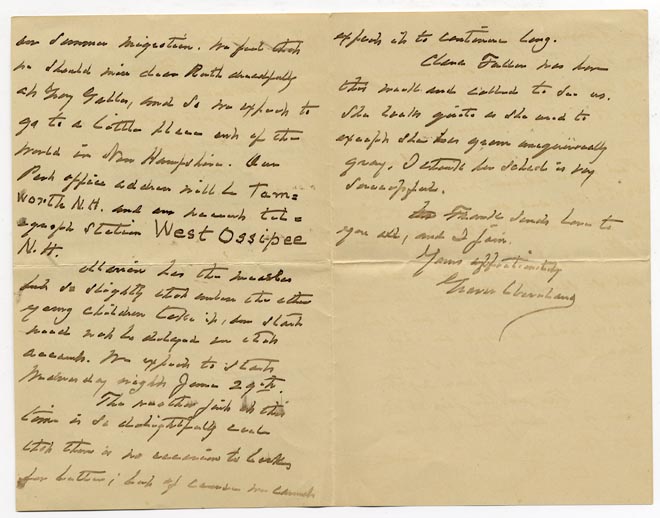 our Summer migration. We feel that
we should miss dear Ruth dreadfully
at Gray Gables, and so we expect to
go to a little place out of the
world in New Hampshire. Our
Post office address will be Tam=
worth N.H. and our nearest tel=
egraph station West Ossipee
N.H.
Marion has the measles
but so slightly that unless the other
young children take it, our start
need not be delayed on that
account. We expect to start
Wednesday night June 29th.
The weather just at this
time is so delightfully cool
that there is no occasion to
for better; but of course we cannot
expect it to continue long.
Clara was here
this week and called to see us.
She looks quite as she used to
except she has grown
gray. I think her school is very
successful.
Mrs sends love to
you all, and I join.
Yours affectionately
Grover Cleveland